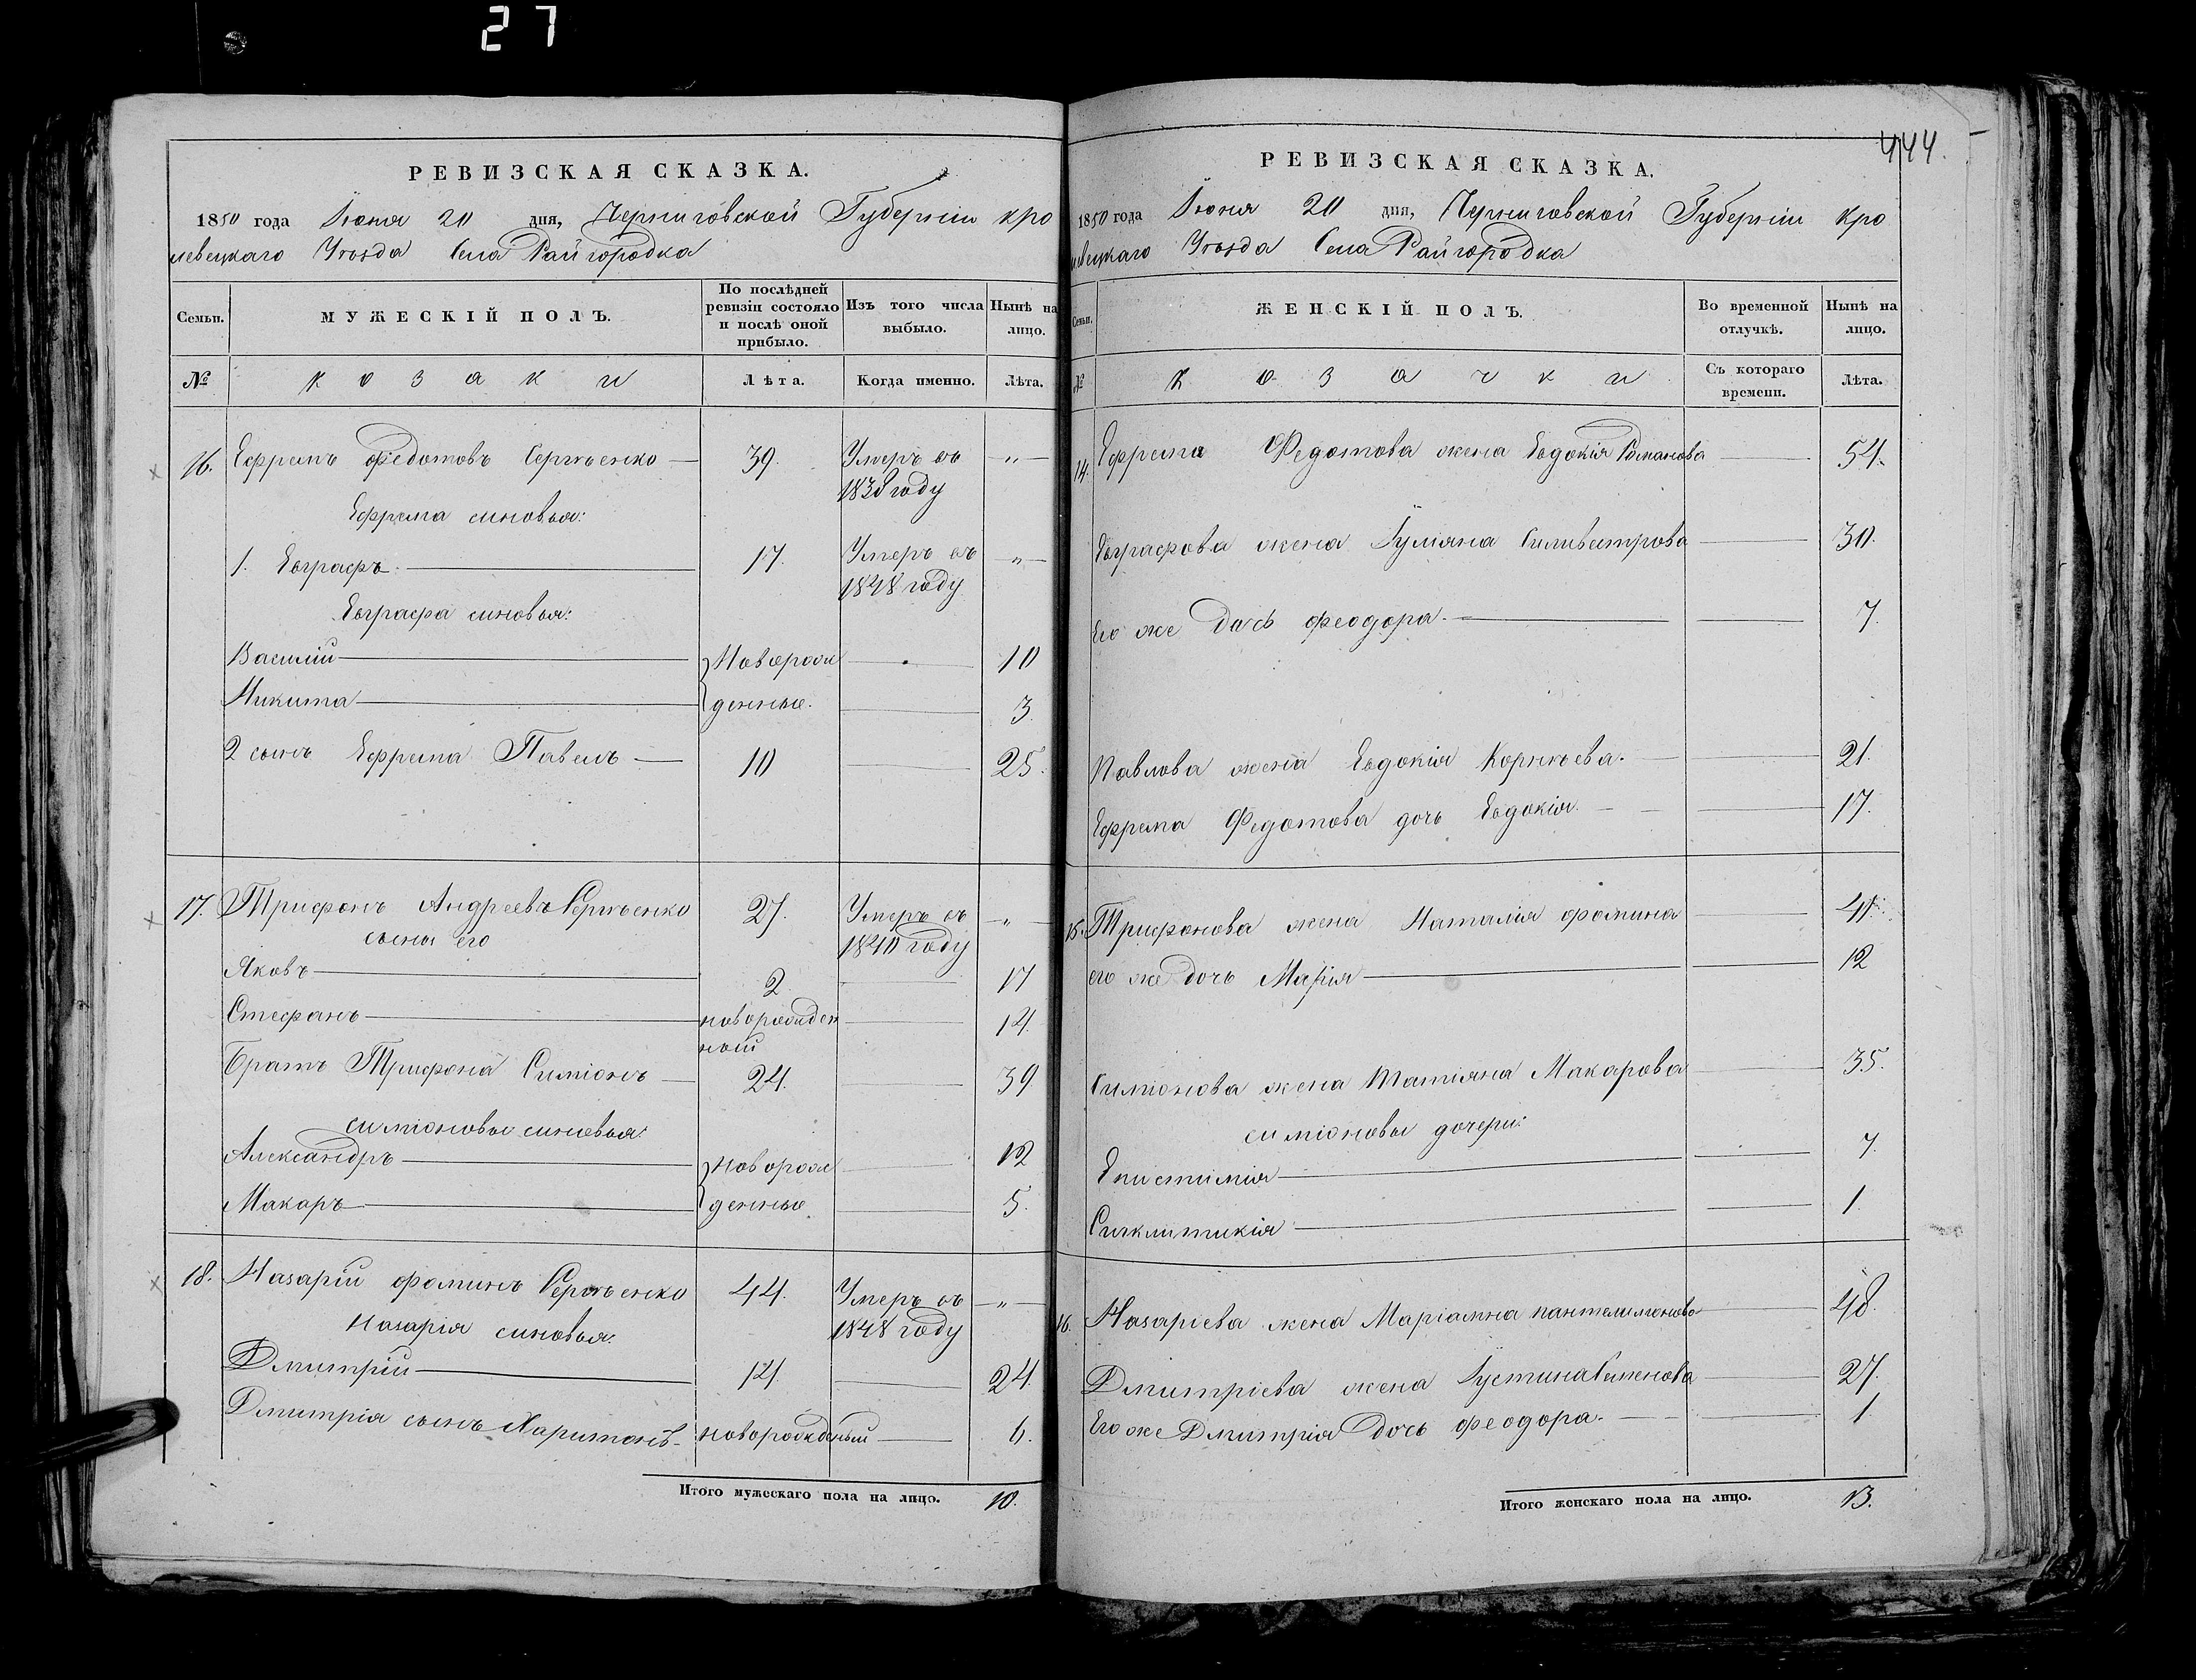 27
444.
РЕВИЗСКАЯ СКАЗКА.
1850 года Июня 20 дня, Черниговской Губерніи Кро
левецкаго Уѣзда Села Райгородка
Семьи.
МУЖЕСКІЙ ПОЛЪ.
По послѣдней ревизіи состояло и послѣ оной прибыло.
Изъ того числа выбыло.
Нынѣ на лицо.
№
Козаки
Лѣта.
Когда именно.
Лѣта.
16. Ефремъ Федотовъ Сергѣенко 39. Умеръ въ „
1838 году
Ефрема синовья:
1. Евграфъ. 17. Умеръ въ „
1848 году
Евграфа синовья:
Василій Новорож 10
Никита денные. 3.
2 сынъ Ефрема Павелъ 10 25.
17. Трифонъ Андреевъ Сергѣенко 27. Умеръ въ „
сыны его 1840 году
Яковъ 2. 17
Стефанъ новорожден 14.
ный
Братъ Трифона Симіонъ 24. 39
симіоновы синовья:
Александръ Новорож 12
Макаръ денные 5.
18. Назарій фоминъ Сергѣенко 44. Умеръ въ „
Назарія синовья: 1848 году
Дмитрій 14. 24.
Дмитрія сынъ Харитонъ новорожденый 6.
Итого мужескаго пола на лицо. 10.
РЕВИЗСКАЯ СКАЗКА.
1850 года Июня 20 дня, Черниговской Губерніи Кро
левецкаго Уѣзда Села Райгородка
Семьи.
ЖЕНСКІЙ ПОЛЪ.
Во временной отлучкѣ.
Нынѣ на лицо.
№
Козачки
Съ котораго времени.
Лѣта.
14. Ефрема Федотова жена Евдокія Романова 54.
Евграфова жена Іуліяна Сильвестрова 30.
Его же дочь феодора. 7.
Павлова жена Евдокія Корнѣева. 21.
Ефрема Федотова дочь Евдокія. 17.
15. Трифонова жена Наталія фомина
его же дочь Марія 12
Симіонова жена Татіяна Макарова 35.
симіоновы дочери:
Епистимія 7.
Синклитикія 1.
16. Назаріева жена Маріамна пантелимонова 48.
Дмитріева жена Іустина Семенова 27.
Его же Дмитрія дочь феодора. 1
Итого женскаго пола на лицо. 13.